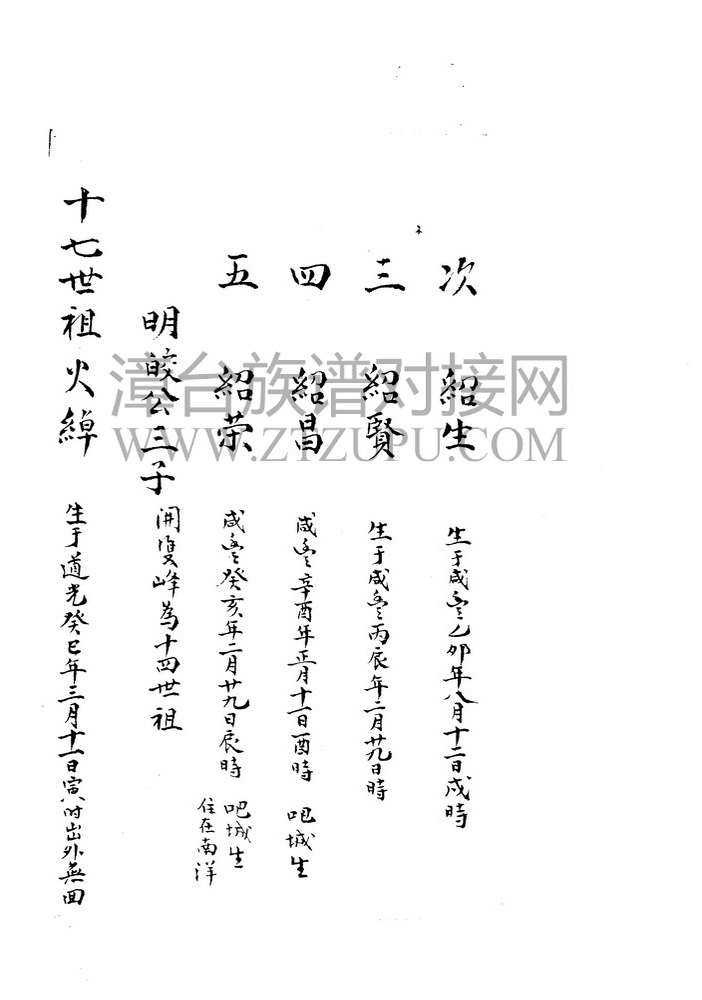 次 紹生 生于咸豊乙卯年八月十二日戌時
三 紹賢 生于咸豊丙辰年二月廿九日時
四 紹昌 咸豊辛酉年正月十一日酉時 吧城生
五 紹荣 咸豊癸亥年二月廿九日辰時 吧城生
住在南洋
明皎公三子 開雙峰為十四世祖
十七世祖火綽 生于道光癸巳年三月十一日寅时出外無回
漳台族谱对接网
WWW.ZTZUPU.COM